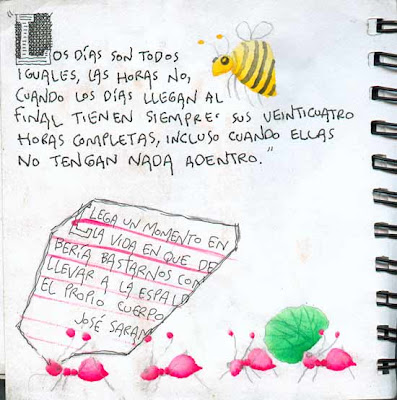 "LOS DÍAS SON TODOS
IGUALES, LAS HORAS NO,
CUANDO LOS DÍAS LLEGAN AL
FINAL TIENEN SIEMPRE SUS VEINTICUATRO
HORAS COMPLETAS, INCLUSO CUANDO ELLAS
NO TENGAN NADA ADENTRO."
LLEGA UN MOMENTO EN
LA VIDA EN QUE DE
BERÍA BASTARNOS CON
LLEVAR A LA ESPALD
EL PROPIO CUERPO
JOSÉ SARAM